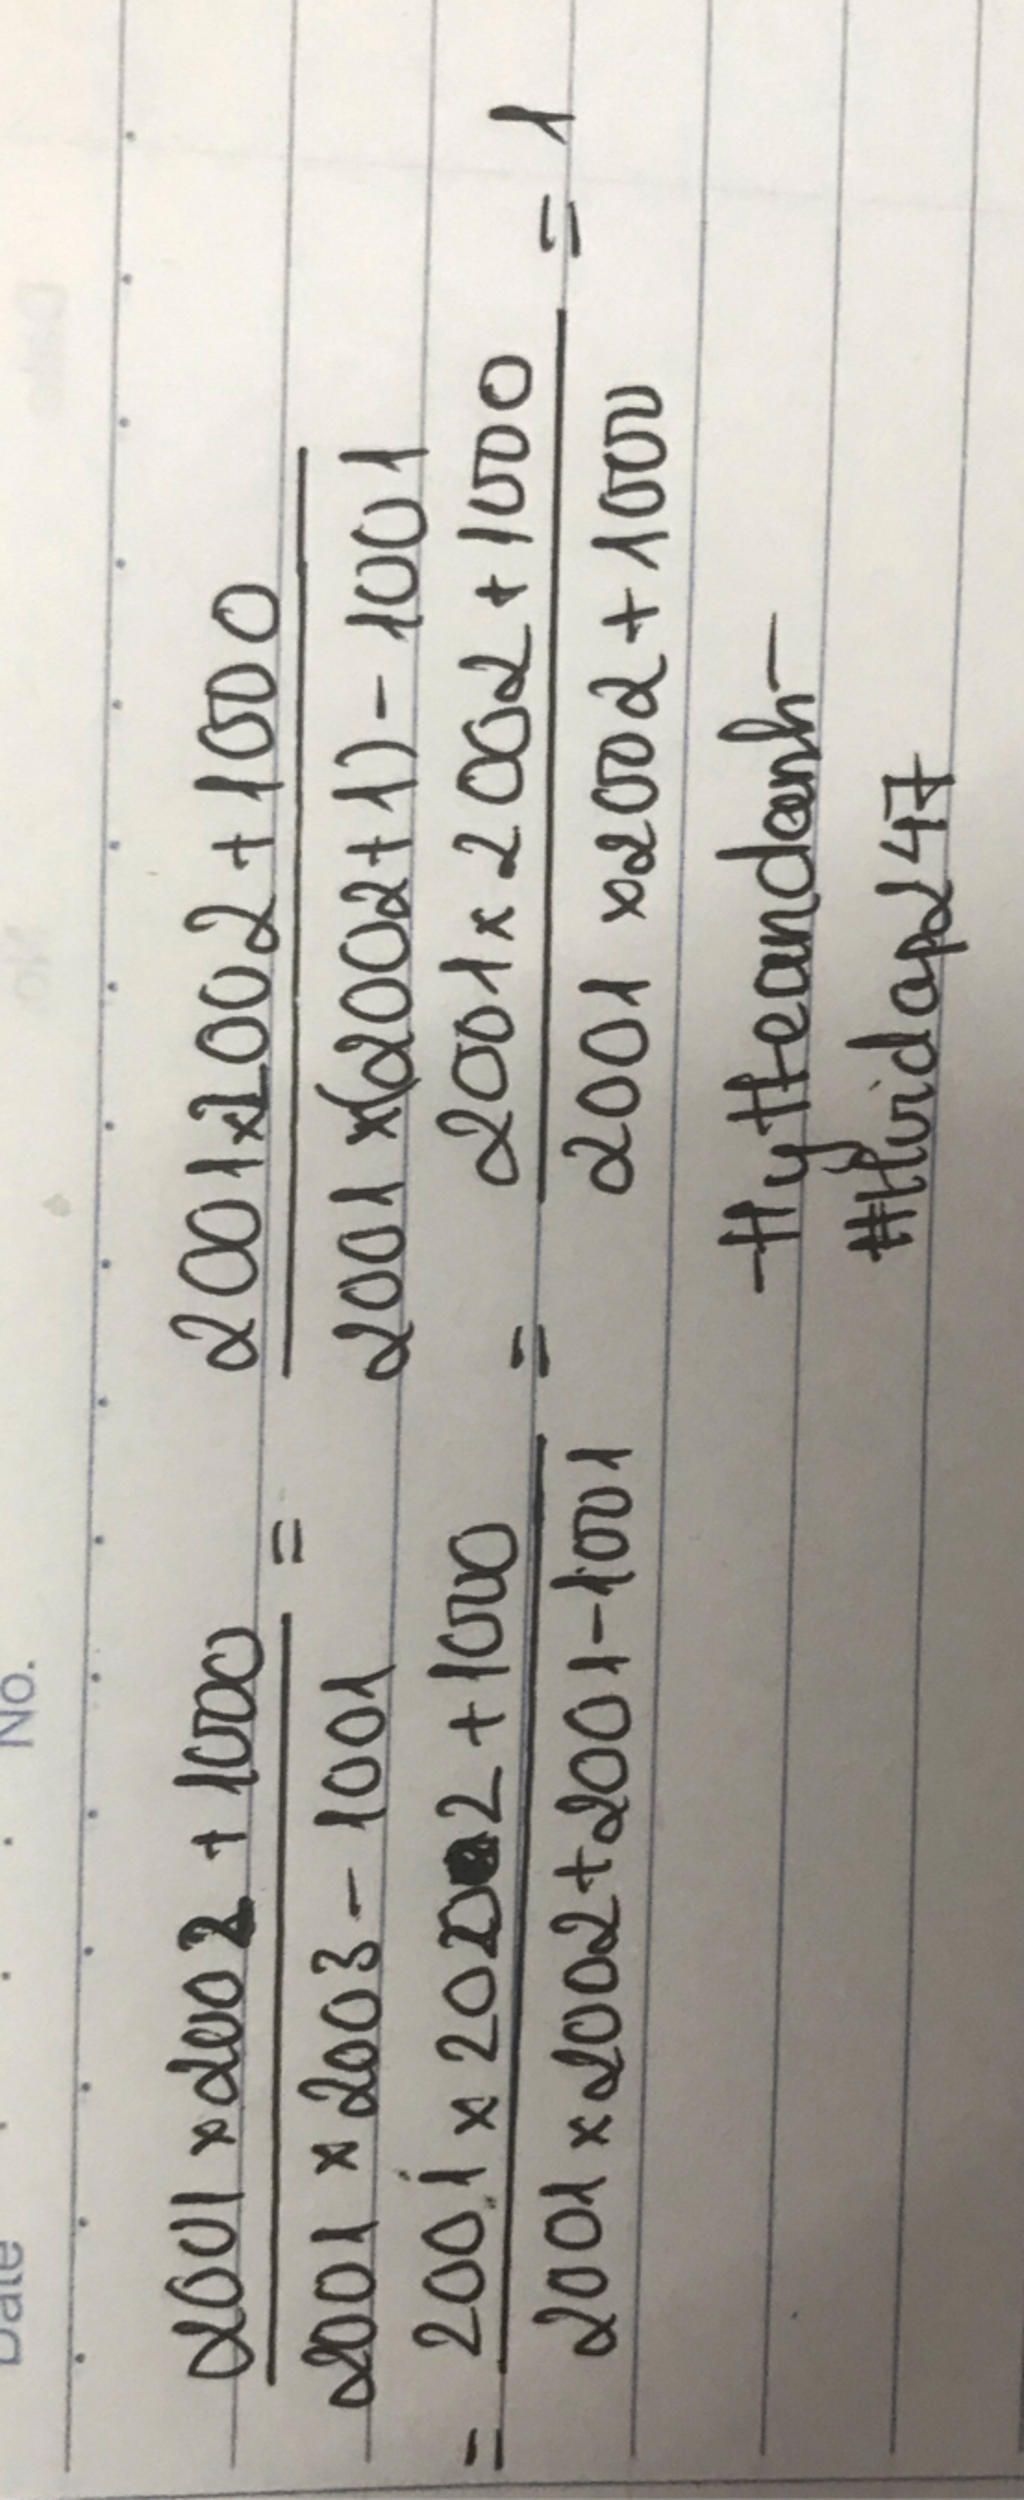 Date No.
2001 × 2002 + 1000 = 2001 × 2002 + 1000
2001 × 2003 - 1001 2001 × (2002 + 1) - 1001
= 2001 × 2002 + 1000 = 2001 × 2002 + 1000 = 1
2001 × 2002 + 2001 - 1001 2001 × 2002 + 1000
-HyHeandanh-
#Hvidap247